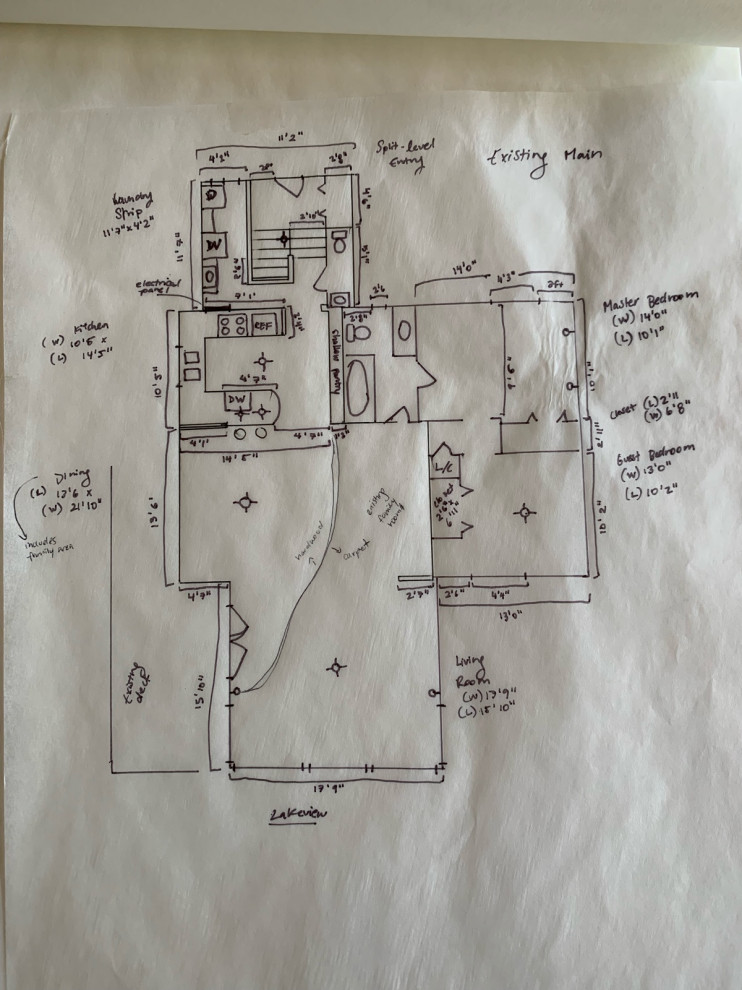 Existing Main
Split-level
Entry
11'2"
4'2"
2'8"
4'6"
Laundry
Strip
11'7" x 4'2"
11'7"
D
DW
2'10"
electrical
panel
7'1"
REF
Kitchen
(W) 10'5 x
(L) 14'5"
10'5"
4'7"
DW
4'1"
4'7"
14'5"
shallow pantry
2'8"
2'6
14'0"
4'3"
2ft
Master Bedroom
(W) 14'0"
(L) 10'1"
10'1"
9'8"
closet (L) 2'11
(W) 6'8"
2'11"
Guest Bedroom
(W) 13'0"
(L) 10'2"
10'2"
L/C
closet
2'6" x
6'11"
Dining
(L) 13'6 x
(W) 21'10"
includes
family area
13'6'
hardwood
carpet
existing
family
room
4'7"
2'7"
2'6"
4'4"
13'0"
Existing
deck
15'10"
Living
Room
(W) 17'9"
(L) 15'10"
17'9"
Lakeview